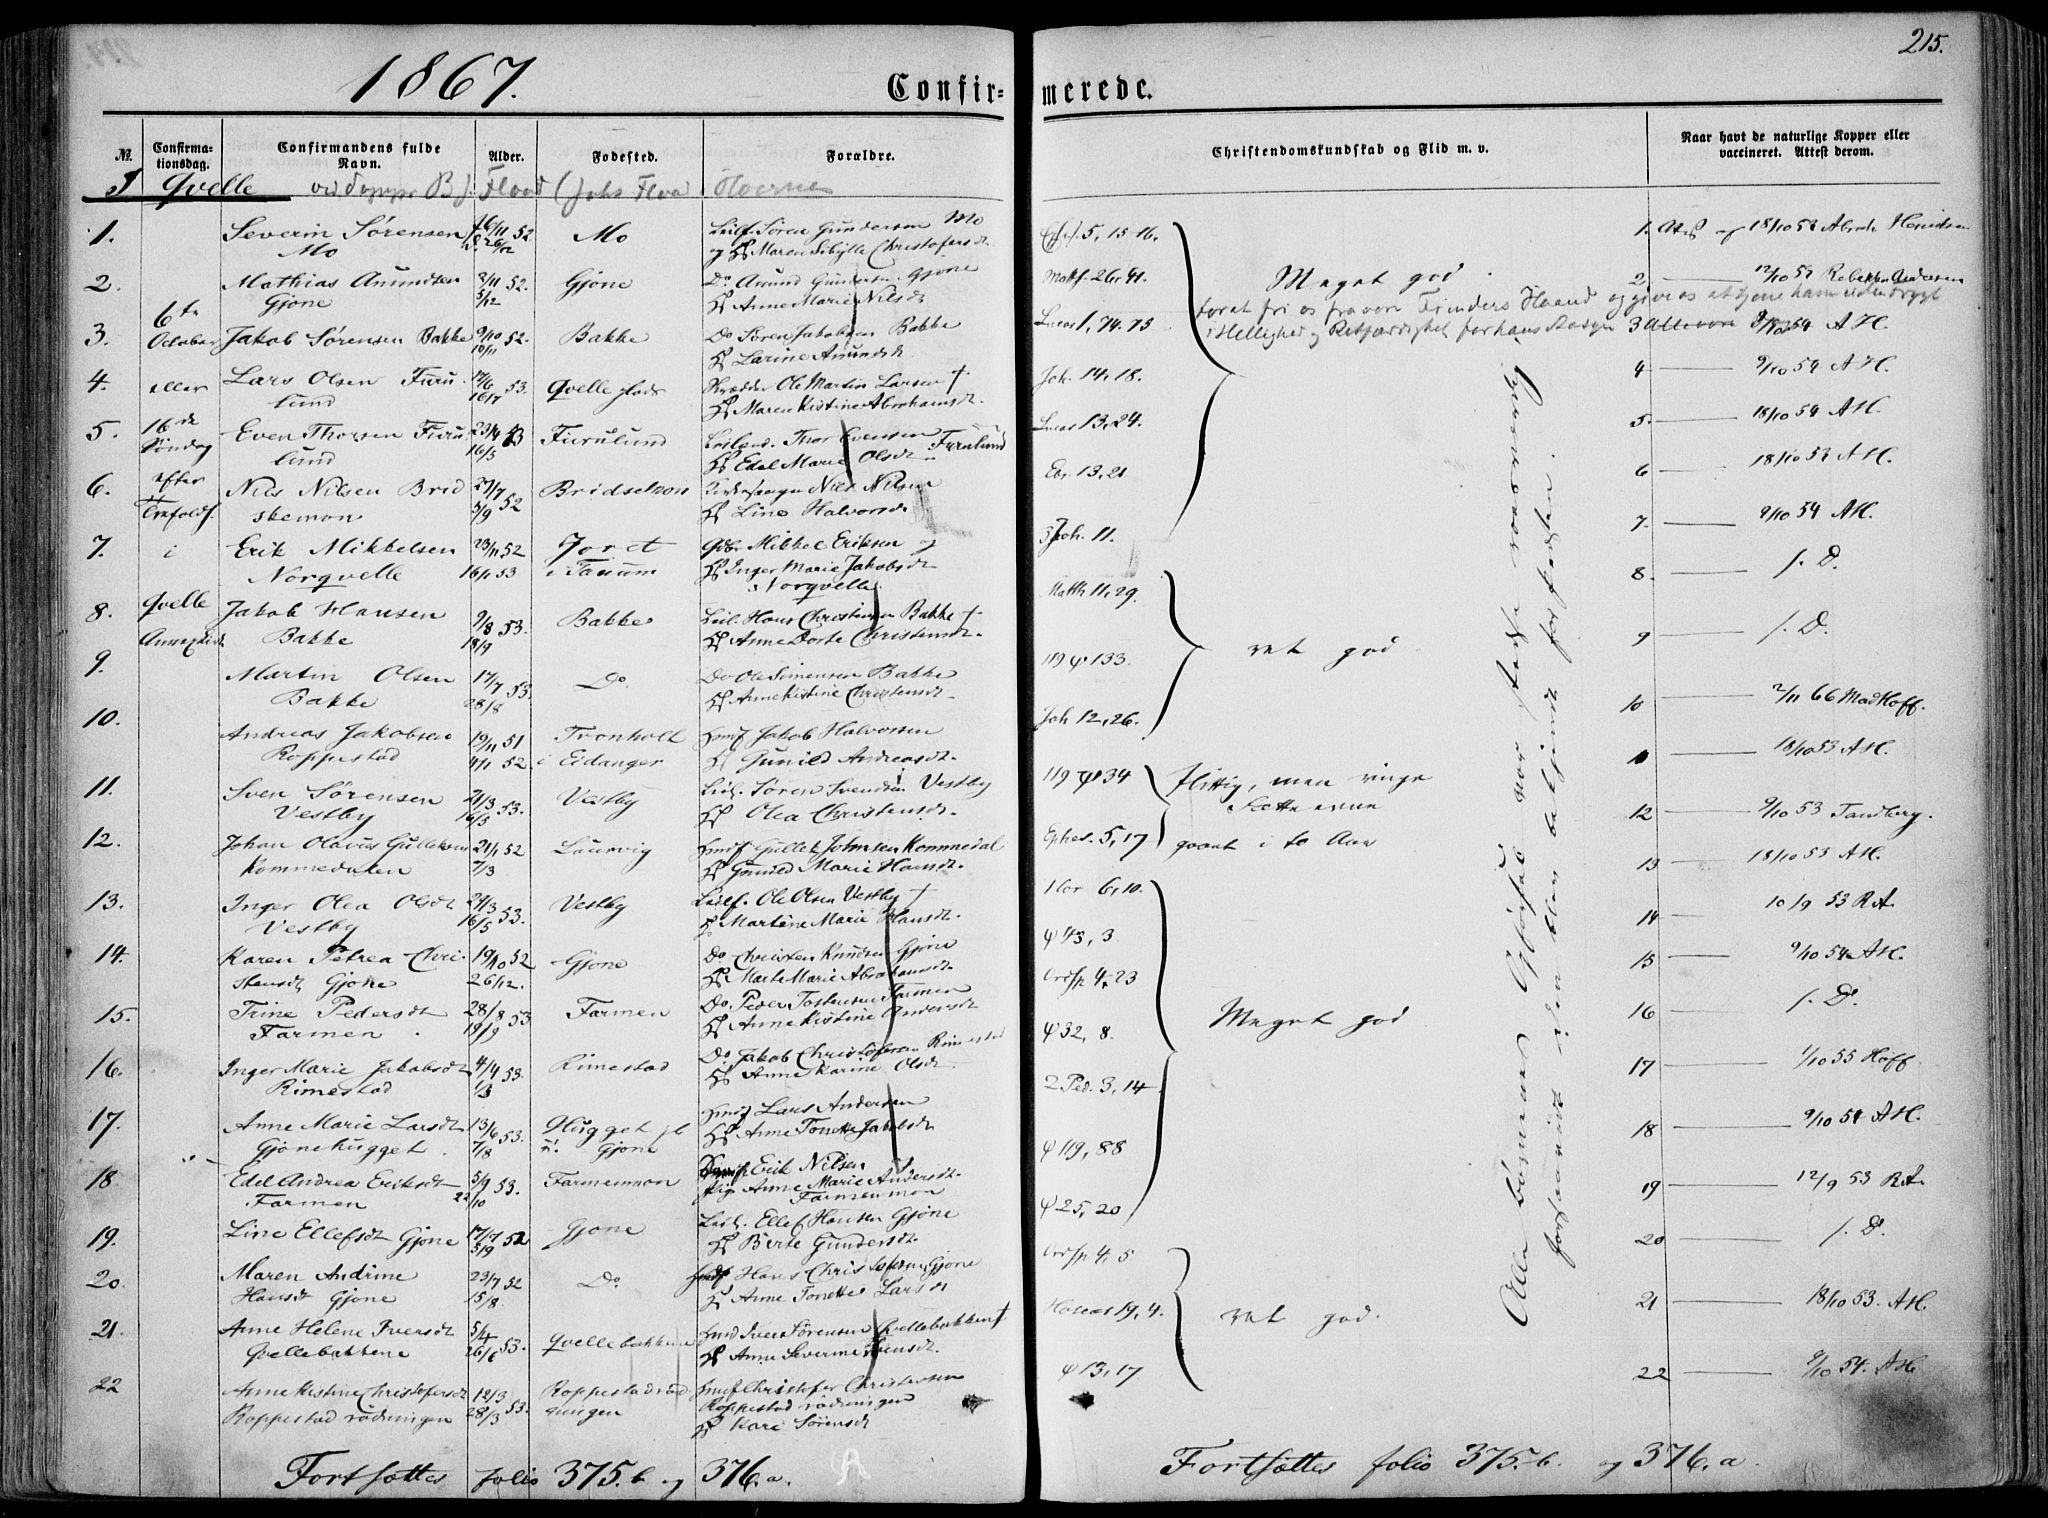 215.
1867.
Confir=
merede.
№.
Confirma-
tionsdag.
Confirmandens fulde
Navn.
Alder.
Fødested.
Forældre.
Christendomskundskab og Flid m. v.
Naar havt de naturlige Kopper eller
vaccineret. Attest derom.
I Qvelle
6te
October
eller
16de
Søndag
efter
Trefoldf.
i
Qvelle
Annexkirke
1. Severin Sørensen 16/11 52. Mo Leilf. Søren Gundersen Mo
Mo 26/12 og H Maren Sibylle Christofersdt
2. Mathias Anundsen 2/11 52. Gjone Do Anund Gundersen Gjone
Gjone 5/12 H Anne Marie Nilsdt
3. Jakob Sørensen Bakke 9/10 52. Bakke Do Søren Jakobsen Bakke
10/11 H Larine Anundsdt
4. Lars Olsen Furu 17/6 53. Qvelle Ole Martin Larsen †
lund 16/7 H Maren Kistine Abrahamsdt.
5. Even Thorsen Furu 23/4 53 Furulund Thor Evensen Furulund
lund 16/5 H Edel Marie Olsdt
6. Nils Nilsen Brid 29/7 52 Bridsekmon Nils Nilsen
skemon 5/9 H Line Halvorsdt
7. Erik Mikkelsen 23/11 52 Jordet Gbr. Mikkel Eriksen og
Norqvelle 16/1 53 i Tanum H Inger Marie Jakobsdt
Norqvelle
8. Jakob Hansen 9/8 53. Bakke Leil. Hans Christensen Bakke †
Bakke 18/9 H Anne Dorte Christensdt.
9. Martin Olsen 17/7 53. Do. Do Ole Simensen Bakke
Bakke 28/8 H Anne Kistine Christensdt
10. Andreas Jakobsen 19/11 51 Tronholt Jakob Halvorsen
Roppestad 4/1 52 i Eidanger H Gunild Andreasdt.
11. Sven Sørensen 21/3 53. Vestby Leil. Søren Svendsen Vestby
Vestby 16/5 H Olea Christensdt.
12. Johan Olavus Gulleksen 21/1 52 Laurvig Gullek Johnsen Kommedal
Kommedalen 7/3. H Gunild Marie Hansdt.
13. Inger Olea Olsdt 24/3 53. Vestby Leilf. Ole Olsen Vestby †
Vestby 16/5 H Martine Marie Hansdt.
14. Karen Petrea Chri- 19/10 52 Gjone Do Christen Knudsen Gjone
stensdt Gjone 26/12. H Marte Marie Abrahamsdt.
15. Trine Pedersdt 28/8 53 Farmen Do. Peder Tostensen Farmen
Farmen 19/9 H Anne Kistine Andersdt
16. Inger Marie Jakobsdt 4/4 53. Rimestad Do. Jakob Christofersen Rimestad
Rimestad 1/3 H Anne Karine Olsdt.
17. Anne Marie Larsdt 13/6 53. Hugget pl. Lars Andersen
Gjonehugget 7/8 u. Gjone H Anne Tonette Jakobsdt
18 Edel Andrea Eriksdt 5/9 53. Farmenmon Erik Nilsen
Farmen 22/10 Pig. Anne Marie Andersdt.
Farmenmon
19. Line Ellefsdt Gjone 17/7 52 Gjone Leil. Ellef Hansen Gjone
5/9 H Berte Gundersdt.
20. Maren Andrine 23/7 52 Do. Hans Christofersen Gjone
Hansdt Gjone 15/8. H Anne Tonette Larsdt
21. Anne Helene Iversdt 5/4 53. Qvellebakkene Iver Sørensen Qvellebakken †
Qvellebakkene 26/6 H Anne Severine Iversdt.
22 Anne Kistine Christofersdt 12/3 53. Roppestadrød- Christofer Christensen
Roppestad rødningen 28/3 ningen Roppestad rødningen
H Kari Sørensdt
Fortsættes folio 375.b og 376.a.
5, 15-16.
Matth. 26, 41.
Lucas 1, 74.75
Joh. 14, 18.
Lucas 13, 24.
Ebr. 13, 21
3 Joh. 11.
Matth 11, 29.
119 ψ 133.
Joh 12, 26.
119 ψ 34
Ephes. 5, 17
1 Cor 6, 10.
ψ 43, 3
Ordsp 4, 23
ψ 32, 8.
2 Ped. 3, 14
ψ 119, 88
ψ 25, 20
Ordsp 4, 5
Hoseas 19, 4.
ψ 13, 17
Meget god
foret fri os fra vore Fienders Haand og give os at tjene ham uden Frygt
i Hellighed og Retfærdighed for hans Aasyn
ret god
flittig, men ringe
Fatteevne
gaaet i to Aar
Meget god
ret god.
Alle børnenes Opførsel har
forsaavidt den
bekjendt for Præsten.
1. 18/10 53 Abrah. Henriksen
2 12/10 53 Rebekka Andersen
3 9/10 54 A H.
4 9/10 54 A H.
5. 18/10 54 A H.
6 18/10 53 A H.
7. 9/10 54 A H.
8. /. D.
9 /. D.
10 2/11 66 Mad Hoff.
11 18/10 53 A H.
12 9/10 53 Tandberg.
13 18/10 53 A H.
14 10/9 53 R.A.
15 9/10 54 A H.
16 /. D.
17 1/10 55 Hoff
18 9/10 54 A H.
19 12/9 53 R.A.
20 /. D.
21 18/10 53. A H.
22 9/10 54. A H
Fortsættes folio 375.b. og 376.a.